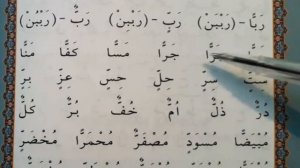 رَبًّا - (رَبْبَنْ) رَبٍّ - (رَبْبِنْ) رَبٌّ - (رَبْبُنْ)
جَرًّا مَسًّا كَفًّا مَنًّا
سِتٍّ سِرٍّ حِلٍّ حِسٍّ عِزٍّ بِرٍّ
دُرٌّ ذُلٌّ اُمٌّ خُفٌّ بُرٌّ كُلٌّ
مُبْيَضًّا مُسْوَدٍّ مُصْفَرٌّ مُحْمَرًّا مُخْضَرٍّ